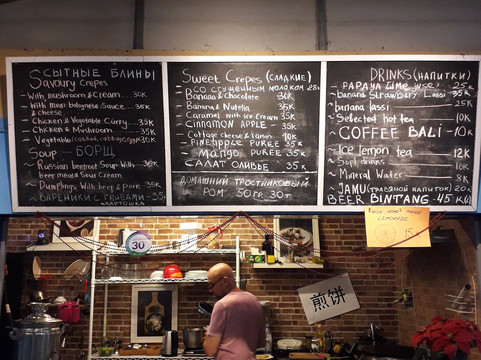 СЫТНЫЕ БЛИНЫ
Savoury Crepes
With mushroom & Cream 30K
With meat bolognese Sauce & cheese 35K
Chicken & Vegetable Curry 35K
Chicken & Mushroom 35K
Vegetable
30K
Soup БОРЩ
Russian beetroot Soup With beef meat & Sour Cream
Dumplings With beef & pork 35K
ВАРЕНИКИ С ГРИБАМИ 35
КАРТОШКА
Sweet Crepes (СЛАДКИЕ)
СО СГУЩЕННЫМ МОЛОКОМ 28K
Banana & Chocolate 30K
Banana & Nutella 35K
Caramel With ice Cream 35K
Cinnamon APPLE 35K
Cottage cheese & 30K
PINEAPPLE PUREE 35K
Mango PUREE 35K
САЛАТ ОЛИВЬЕ 35K
ДОМАШНИЙ ТРОСТНИКОВЫЙ
РОМ 50 ГР. 30
DRINKS (НАПИТКИ)
PAPAYA LIME JUICE 25K
banana Strawberry Lassi 35K
banana lassi 25K
Selected hot tea 10K
COFFEE BALI 10K
Ice lemon tea 12K
Soft drinks 10K
Mineral Water 10K
JAMU (ТРАВЯНОЙ НАПИТОК) 20K
BEER BINTANG 45K
LEMONADE
15
30
煎饼